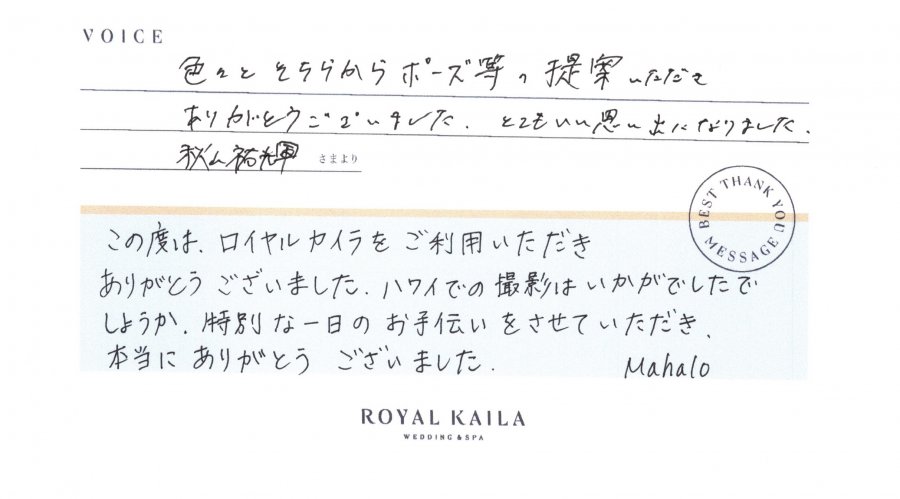 VOICE
色々とそちらからポーズ等の提案いただき
ありがとうございました。とてもいい思い出になりました。
秋山祐輝 さまより
BEST THANK YOU MESSAGE
この度は、ロイヤルカイラをご利用いただき
ありがとうございました。ハワイでの撮影はいかがでしたで
しょうか。特別な一日のお手伝いをさせていただき、
本当にありがとうございました。 Mahalo
ROYAL KAILA
WEDDING & SPA